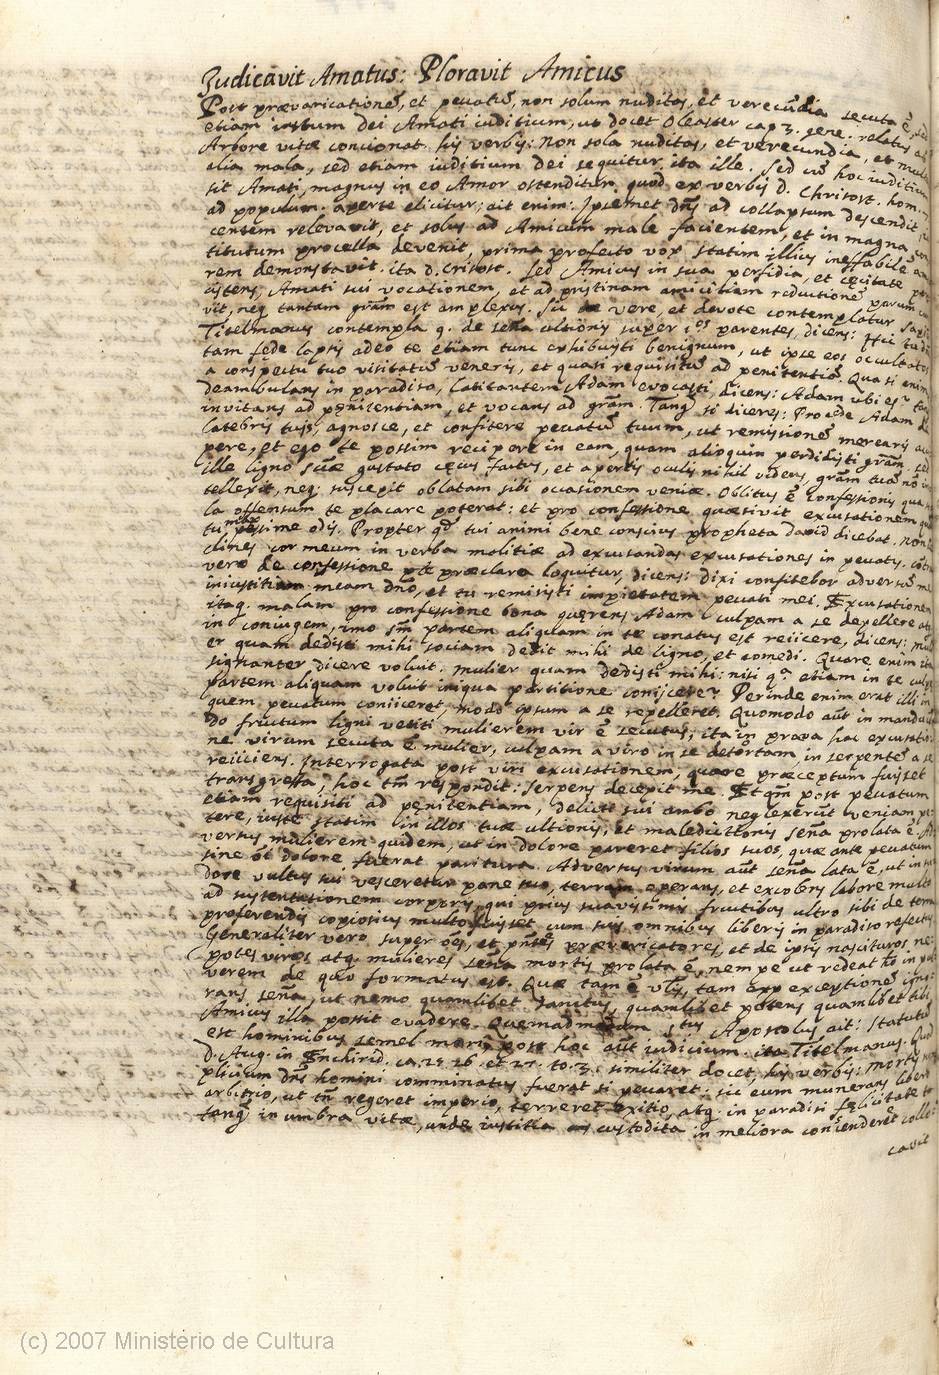 Judicavit Amatus: Ploravit Amicus
Post prævaricationē, et peccatū, non solum nuditas, et verecūdia secuta ē,
etiam iustum dei Amati iuditium, ut docet Oleaster cap 3. gene. relatus
Arbore vitæ concionat. hij verbij: Non sola nuditas, et verecundia, et
alia mala, sed etiam iuditium dei sequitur, ita ille. Sed cū hoc iuditiū
sit Amati, magnus in eo Amor ostenditur, quod ex verbij D. Christost. hom.
ad populum. aperte elicitur; ait enim: Ipsemet dn̄s ad collapsum descendit,
centem relevavit, et solus ad Amicum male facientem, et in magna
titutum procella devenit, prima profecto vox statim illius ineffabilē
rem demonstavit. ita D. Crisost. Sed Amicus in sua perfidia, et cęcitate
istens, Amati sui vocationem, et ad pristinam amicitiam reductionē parum
vit, neq tantam grām est amplexus. Sic vere, et devote contemplatur
Titelmanus contempla q. de sen̄a ultionis super parentes, dicens: Hic
tam fede lapsis adeo te etiam tunc exhibuisti benignum, ut ipse eos occultatos
a conspectu tuo visitatū veneris, et quasi requisitū ad penitentiā. Quasi enim
deambulans in paradiso, latitantem Adam evocasti, dicens: Adam ubi es?
invitans ad pęnitentiam, et vocans ad grām. Tanq̄ si diceres: Procede Adam
latebris tuis, agnosce, et confitere peccatū tuum, ut remissionē merearis
pere, et ego te possim recipere in eam, quam alioquin perdidisti grām, sed
ille ligno scīæ gustato cęcus factus, et apertis oculis nihil videns, grām tuā nō
tellexit, neq; suscepit oblatam sibi occasionem veniæ. Oblitus ē confessionis qua
la offensum te placare poterat: et pro confessione quæsivit excusationem
tu pessime odis. Propter qd̄ tui animi bene conscius propheta David dicebat. Non
clines cor meum in verba malitiæ ad excusandas excusationes in peccatis.
vero de confessione præclara loquitur, dicens: Dixi confitebor adversū me
iniustitiam meam dn̄o, et tu remisisti impietatem peccati mei. Excusationem
itaq. malam pro confessione bona quęrens Adam culpam a se depellere
in coniugem, imo partem aliquam in te conatus est reiicere, dicens:
er quam dedisti mihi sociam dedit mihi de ligno, et comedi. Quare enim
signanter dicere voluit. mulier quam dedisti mihi: nisi qa etiam in te
partem aliquam voluit iniqua partitione conijcere? Perinde enim erat illi in
quem peccatum coniiceret, modo ipsum a se repelleret. Quomodo aūt in
do fructum ligni vetiti mulierem vir ē secutus; ita in prava hac excusatio
ne virum secuta ē mulier, culpam a viro in se detortam, in serpentē a se
reiiciens. Interrogata post viri excusationem, quare præceptum fuisset
transgressa, hoc tm̄ respondit: serpens decepit me. Et qm̄ post peccatum
etiam requisiti ad penitentiam, delicti sui ambo neglexerūt veniam
tere, iuste statim in illos tuæ ultionis, et maledictionis sen̄a prolata ē.
versus mulierem quidem, ut in dolore pareret filios suos, quæ ante peccatum
sine oī dolore fuerat paritura. Adversus virum aūt sen̄a lata ē, ut in
dore vultus sui vesceretur pane suo, terram operans, et excolens labore multo
ad sustentationem corporis, qui prius suavissimis fructibus ultro sibi de terra
proferendis copiosius multo vixisset cum suis omnibus liberis in paradiso
Generaliter vero super oēs, et pn̄tes prævaricatores, et de ipsis nascituros ne:
potes viros atq. mulieres sen̄a mortis prolata ē, nempe ut redeat hō in pul
verem de quo formatus est. Quæ tam ē vlis, tam expp exceptionē
rans sen̄a, ut nemo quamlibet sanctus, quamlibet potens quamlibet tibi
Amicus illa possit evadere. Quemadmodum Apostolus ait: Statutū
est hominibus semel mori, post hoc aūt iudicium. ita Titelmanus.
D. Aug. in Enchirid. ca. 25. 26. et 27. to. 3. similiter docet, hij verbij: mortis
plicium dn̄s homini comminatus fuerat si peccaret: sic eum munerans libero
arbitrio, ut tn̄ regeret imperio, terreret exitio, atq. in paradisi fęlicitate
tanq̄ in umbra vitæ, unde iustitia custodita in meliora conscenderet collo
cavit
(c) 2007 Ministério de Cultura